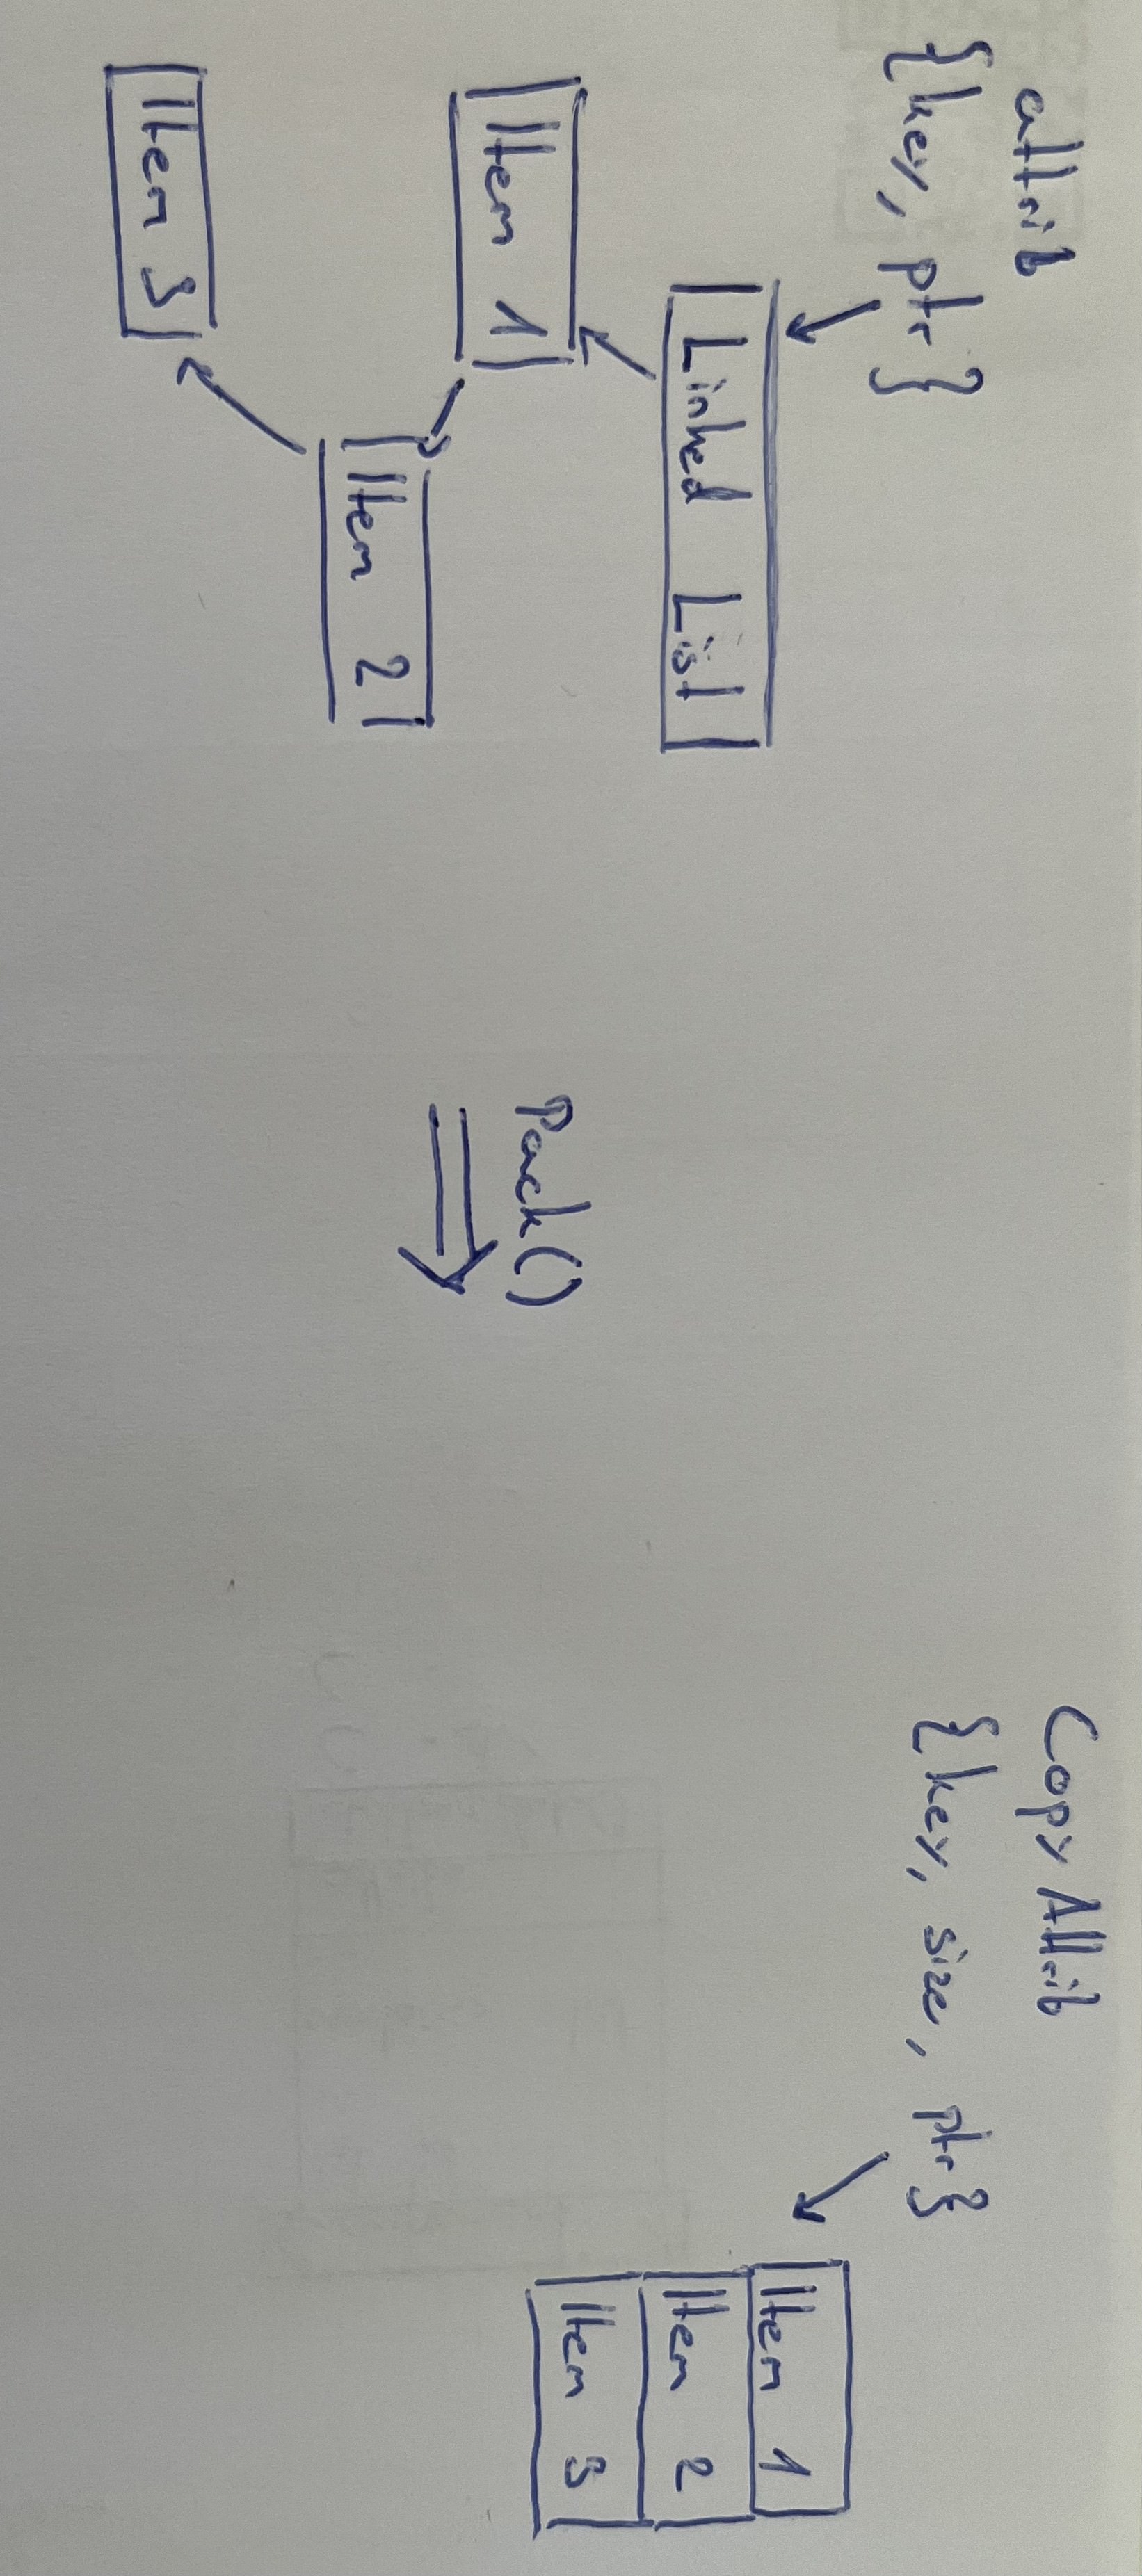 attrib
{key, ptr}
Linked List
Item 1
Item 2
Item 3
Pack()
Copy Attrib
{key, size, ptr}
Item 1
Item 2
Item 3